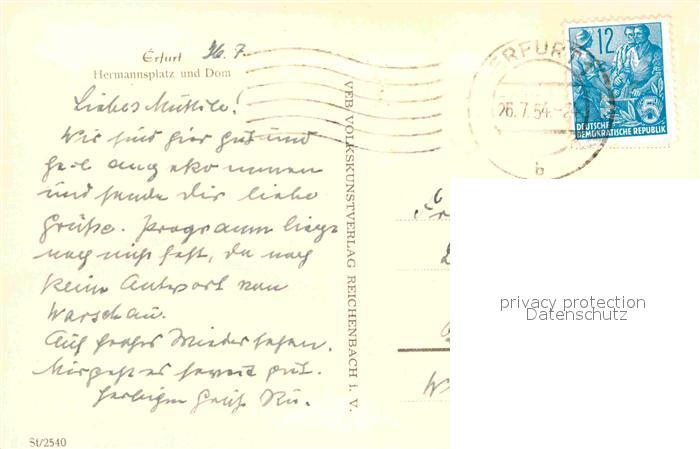 Erfurt 26.7.
Hermannsplatz und Dom
Liebes Muttile!
Wir sind hier gut und
heil angekommen
und sende Dir liebe
Grüße. Programm liegt
noch nicht fest, da noch
keine Antwort von
Warschau.
Auf frohes Wiedersehen.
Mir geht es soweit gut.
Herzlichen Gruß
St/2540
VEB VOLKSKUNSTVERLAG REICHENBACH i. V.
ERFURT
26.7.54
b
12
5
DEUTSCHE
DEMOKRATISCHE REPUBLIK
privacy protection
Datenschutz